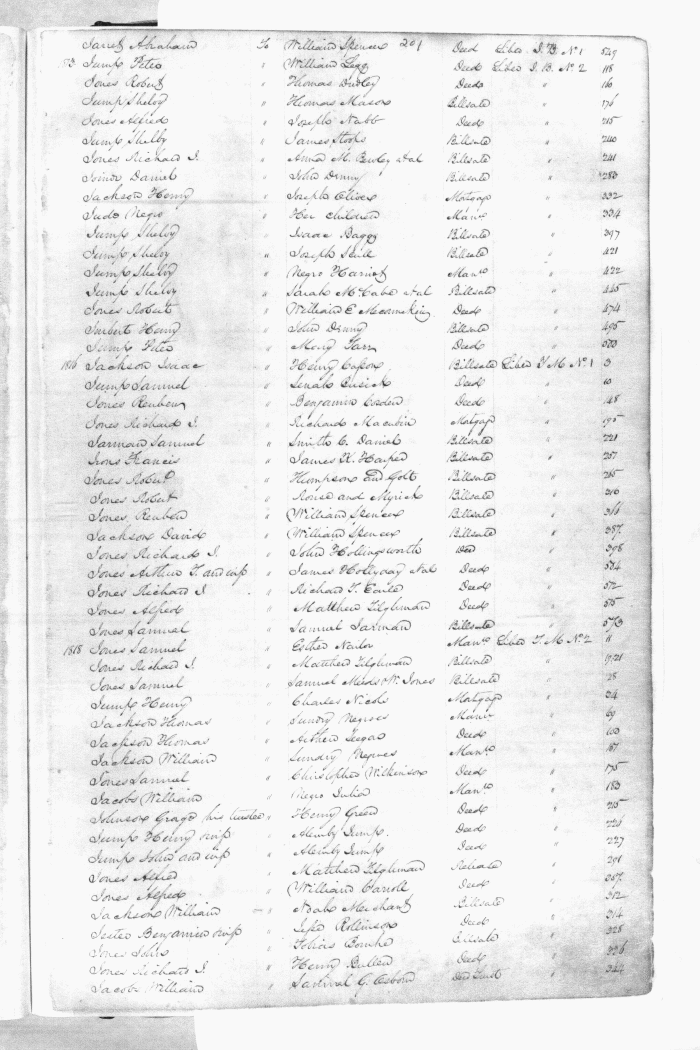 201
Jarret Abraham To William Spencer Deed Liber J. B. No 1 549
Jump Peter " William Legg Deed Liber J. B. No 2 118
Jones Robert " Thomas Dudley Deed " 160
Jump Shelby " Thomas Mason Billsale " 176
Jones Alfred " Joseph Nabb Deed " 215
Jump Shelby " James Stoops Billsale " 240
Jones Richard I. " Anna M. Bewley et al Billsale " 241
Daniel " John Denny Billsale " 283
Jackson Henry " Joseph Oliver Mortgage " 332
Jude Negro " Her children Manu " 334
Jump Shelby " Isaac Baggs Billsale " 397
Jump Shelby " Joseph Billsale " 421
Jump Shelby " Negro Harriet Manu " 422
Jump Shelby " Sarah McCabe et al Billsale " 445
Jones Robert " William E Meconnekin Deed " 474
Henry " John Denny Billsale " 495
Jump Peter " Mary Starr Deed "
1816 Jackson Isaac " Henry Casson Billsale Liber T M No 1 3
Jump Samuel " Cusick Deed " 10
Jones Reuben " Benjamin Corden Deed " 148
Jones Richard I. " Richard Maccubin Mortgage " 195
Jarman Samuel " Smith C. Daniel Billsale " 221
Irons Francis " James H. Harper Billsale " 257
Jones Robert " Thompson and Golt Billsale " 265
Jones Robert " and Myrick Billsale " 316
Jones, Reuben " William Spencer Billsale " 366
Jackson David " William Spencer Billsale " 387
Jones, Richard I. " John Hollingsworth Deed " 398
Jones Arthur T. and wife " James Hollyday et al Deed " 504
Jones Richard I " Richard T. Earle Deed " 572
Jones Alfred " Matthew Tilghman Deed " 575
Jones Samuel " Samuel Jarman Billsale " 573
1818 Jones Samuel " Esther Nailor Manu Liber T. M. No. 2 11
Jones Richard I. " Matthew Tilghman Billsale "
Jones Samuel " Samuel Jones Billsale " 28
Jump Henry " Charles Nicols Mortgage " 34
Jackson Thomas " Sundry Negroes Manu " 69
Jackson Thomas " Arthur Deed " 110
Jackson William " Sundry Negroes Manu " 167
Jones Samuel " Christopher Wilkinson Deed " 175
Jacobs William " Negro Julia Manu " 183
Johnson George his trustee " Henry Green Deed " 215
Jump Henry & wife " Alemby Jump Deed " 226
Jump John and wife " Alemby Jump Deed " 227
Jones Alfred " Matthew Tilghman Release " 291
Jones Alfred " William Carroll Deed " 307
Jackson William " Noah Merchant Billsale " 312
Jester Benjamin & wife " Rollinson Deed " 314
Jones John " Tobias Bourke Billsale " 328
Jones Richard I. " Henry Bullen Deed " 336
Jacobs William " G. Osborn Deed Trust " 344